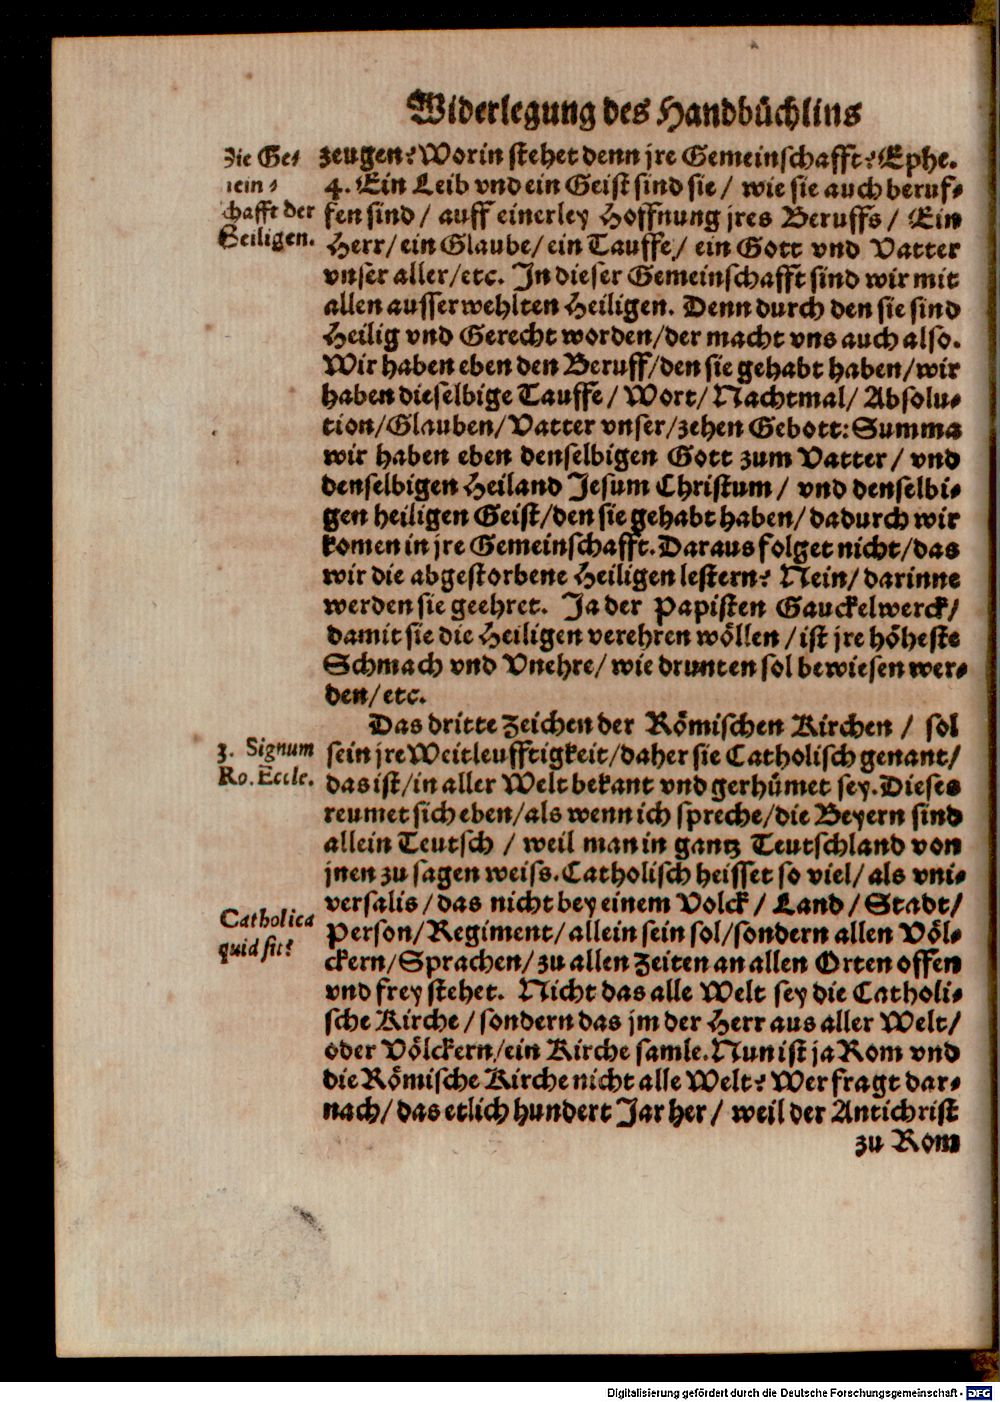 Widerlegung des Handbüchlins
Die Ge⸗
mein⸗
schafft der
Heiligen.
zeugen? Worin stehet denn jre Gemeinschafft? Ephe.
4. Ein Leib vnd ein Geist sind sie / wie sie auch beruf⸗
fen sind / auff einerley Hoffnung jres Beruffs / Ein
Herr / ein Glaube / ein Tauffe / ein Gott vnd Vatter
vnser aller / etc. In dieser Gemeinschafft sind wir mit
allen ausserwehlten Heiligen. Denn durch den sie sind
Heilig vnd Gerecht worden / der macht vns auch also.
Wir haben eben den Beruff / den sie gehabt haben / wir
haben dieselbige Tauffe / Wort / Nachtmal / Absolu⸗
tion / Glauben / Vatter vnser / zehen Gebott: Summa
wir haben eben denselbigen Gott zum Vatter / vnd
denselbigen Heiland Jesum Christum / vnd denselbi⸗
gen heiligen Geist / den sie gehabt haben / dadurch wir
komen in jre Gemeinschafft. Daraus folget nicht / das
wir die abgestorbene Heiligen lestern? Nein / darinne
werden sie geehret. Ja der Papisten Gauckelwerck /
damit sie die Heiligen verehren wöllen / ist jre höheste
Schmach vnd Vnehre / wie drunten sol bewiesen wer⸗
den / etc.
Das dritte Zeichen der Römischen Kirchen / sol
3. Signum
Ro. Eccle.
sein jre Weitleufftigkeit / daher sie Catholisch genant /
das ist / in aller Welt bekant vnd gerhümet sey. Dieses
reumet sich eben / als wenn ich spreche / die Beyern sind
allein Teutsch / weil man in gantz Teutschland von
jnen zu sagen weiss. Catholisch heisset so viel / als vni⸗
versalis / das nicht bey einem Volck / Land / Stadt /
Catholica
quid sit?
Person / Regiment / allein sein sol / sondern allen Völ⸗
ckern / Sprachen / zu allen Zeiten an allen Orten offen
vnd frey stehet. Nicht das alle Welt sey die Catholi⸗
sche Kirche / sondern das jm der Herr aus aller Welt /
oder Völckern / ein Kirche samle. Nun ist ja Rom vnd
die Römische Kirche nicht alle Welt? Wer fragt dar⸗
nach / das etlich hundert Jar her / weil der Antichrist
zu Rom
Digitalisierung gefördert durch die Deutsche Forschungsgemeinschaft - DFG